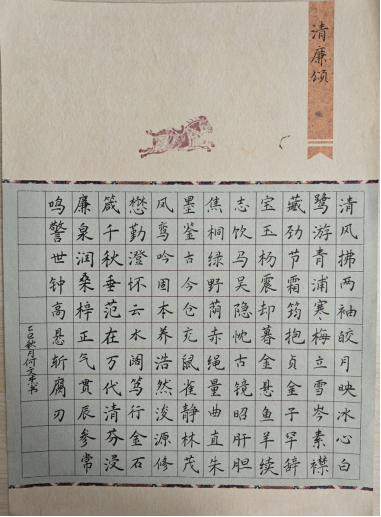 清廉颂
清风拂两袖皎月映冰心白
鹭游青浦寒梅立雪岑素襟
藏劲节霜筠抱贞金子罕辞
宝玉杨震却暮金悬鱼羊续
志饮马吴隐忱古镜昭肝胆
焦桐绿野荫赤绳量曲直朱
墨鉴古今仓充鼠雀静林茂
凤鸾吟固本养浩然浚源修
懋勤澄怀云水阔笃行金石
箴千秋垂范在万代清芬浸
廉泉润桑梓正气贯辰参常
鸣警世钟高悬斩腐刃
乙巳秋月何文书